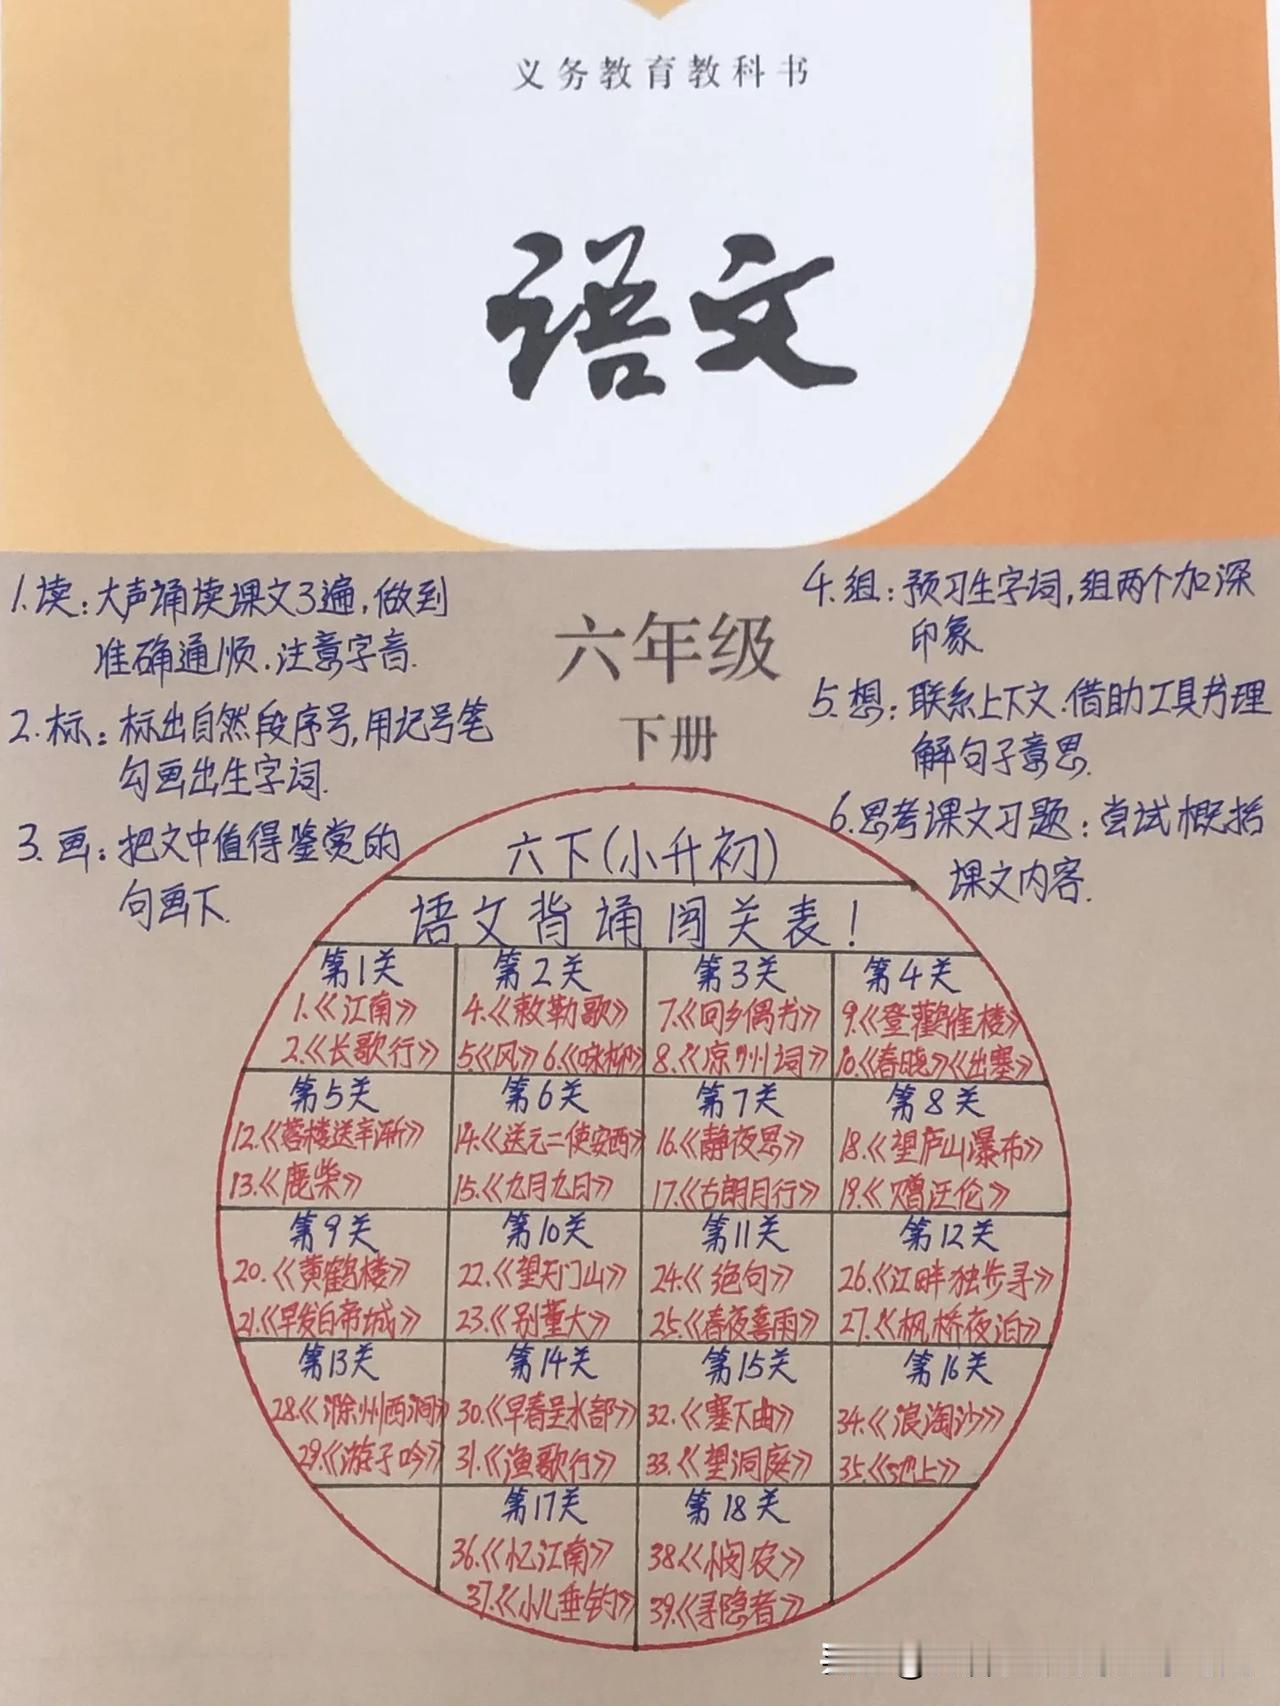 义务教育教科书
语文
六年级
下册
1.读:大声诵读课文3遍,做到
准确通顺.注意字音.
2.标:标出自然段序号,用记号笔
勾画出生字词.
3.画:把文中值得鉴赏的
句画下.
4.组:预习生字词,组两个加深
印象
5.想:联系上下文.借助工具书理
解句子意思.
6.思考课文习题:尝试概括
课文内容.
六下(小升初)
语文背诵闯关表!
第1关
1.《江南》
2.《长歌行》
第2关
4.《敕勒歌》
5.《风》6.《咏柳》
第3关
7.《回乡偶书》
8.《凉州词》
第4关
9.《登鸛雀楼》
10.《春晓》《出塞》
第5关
12.《蓉楼送辛渐》
13.《鹿柴》
第6关
14.《送元二使安西》
15.《九月九日》
第7关
16.《静夜思》
17.《古朗月行》
第8关
18.《望庐山瀑布》
19.《赠汪伦》
第9关
20.《黄鹤楼》
21.《早发白帝城》
第10关
22.《望天门山》
23.《别董大》
第11关
24.《绝句》
25.《春夜喜雨》
第12关
26.《江畔独步寻》
27.《枫桥夜泊》
第13关
28.《滁州西涧》
29.《游子吟》
第14关
30.《早春呈水部》
31.《渔歌行》
第15关
32.《塞下曲》
33.《望洞庭》
第16关
34.《浪淘沙》
35.《池上》
第17关
36.《忆江南》
37.《小儿垂钓》
第18关
38.《悯农》
39.《寻隐者》